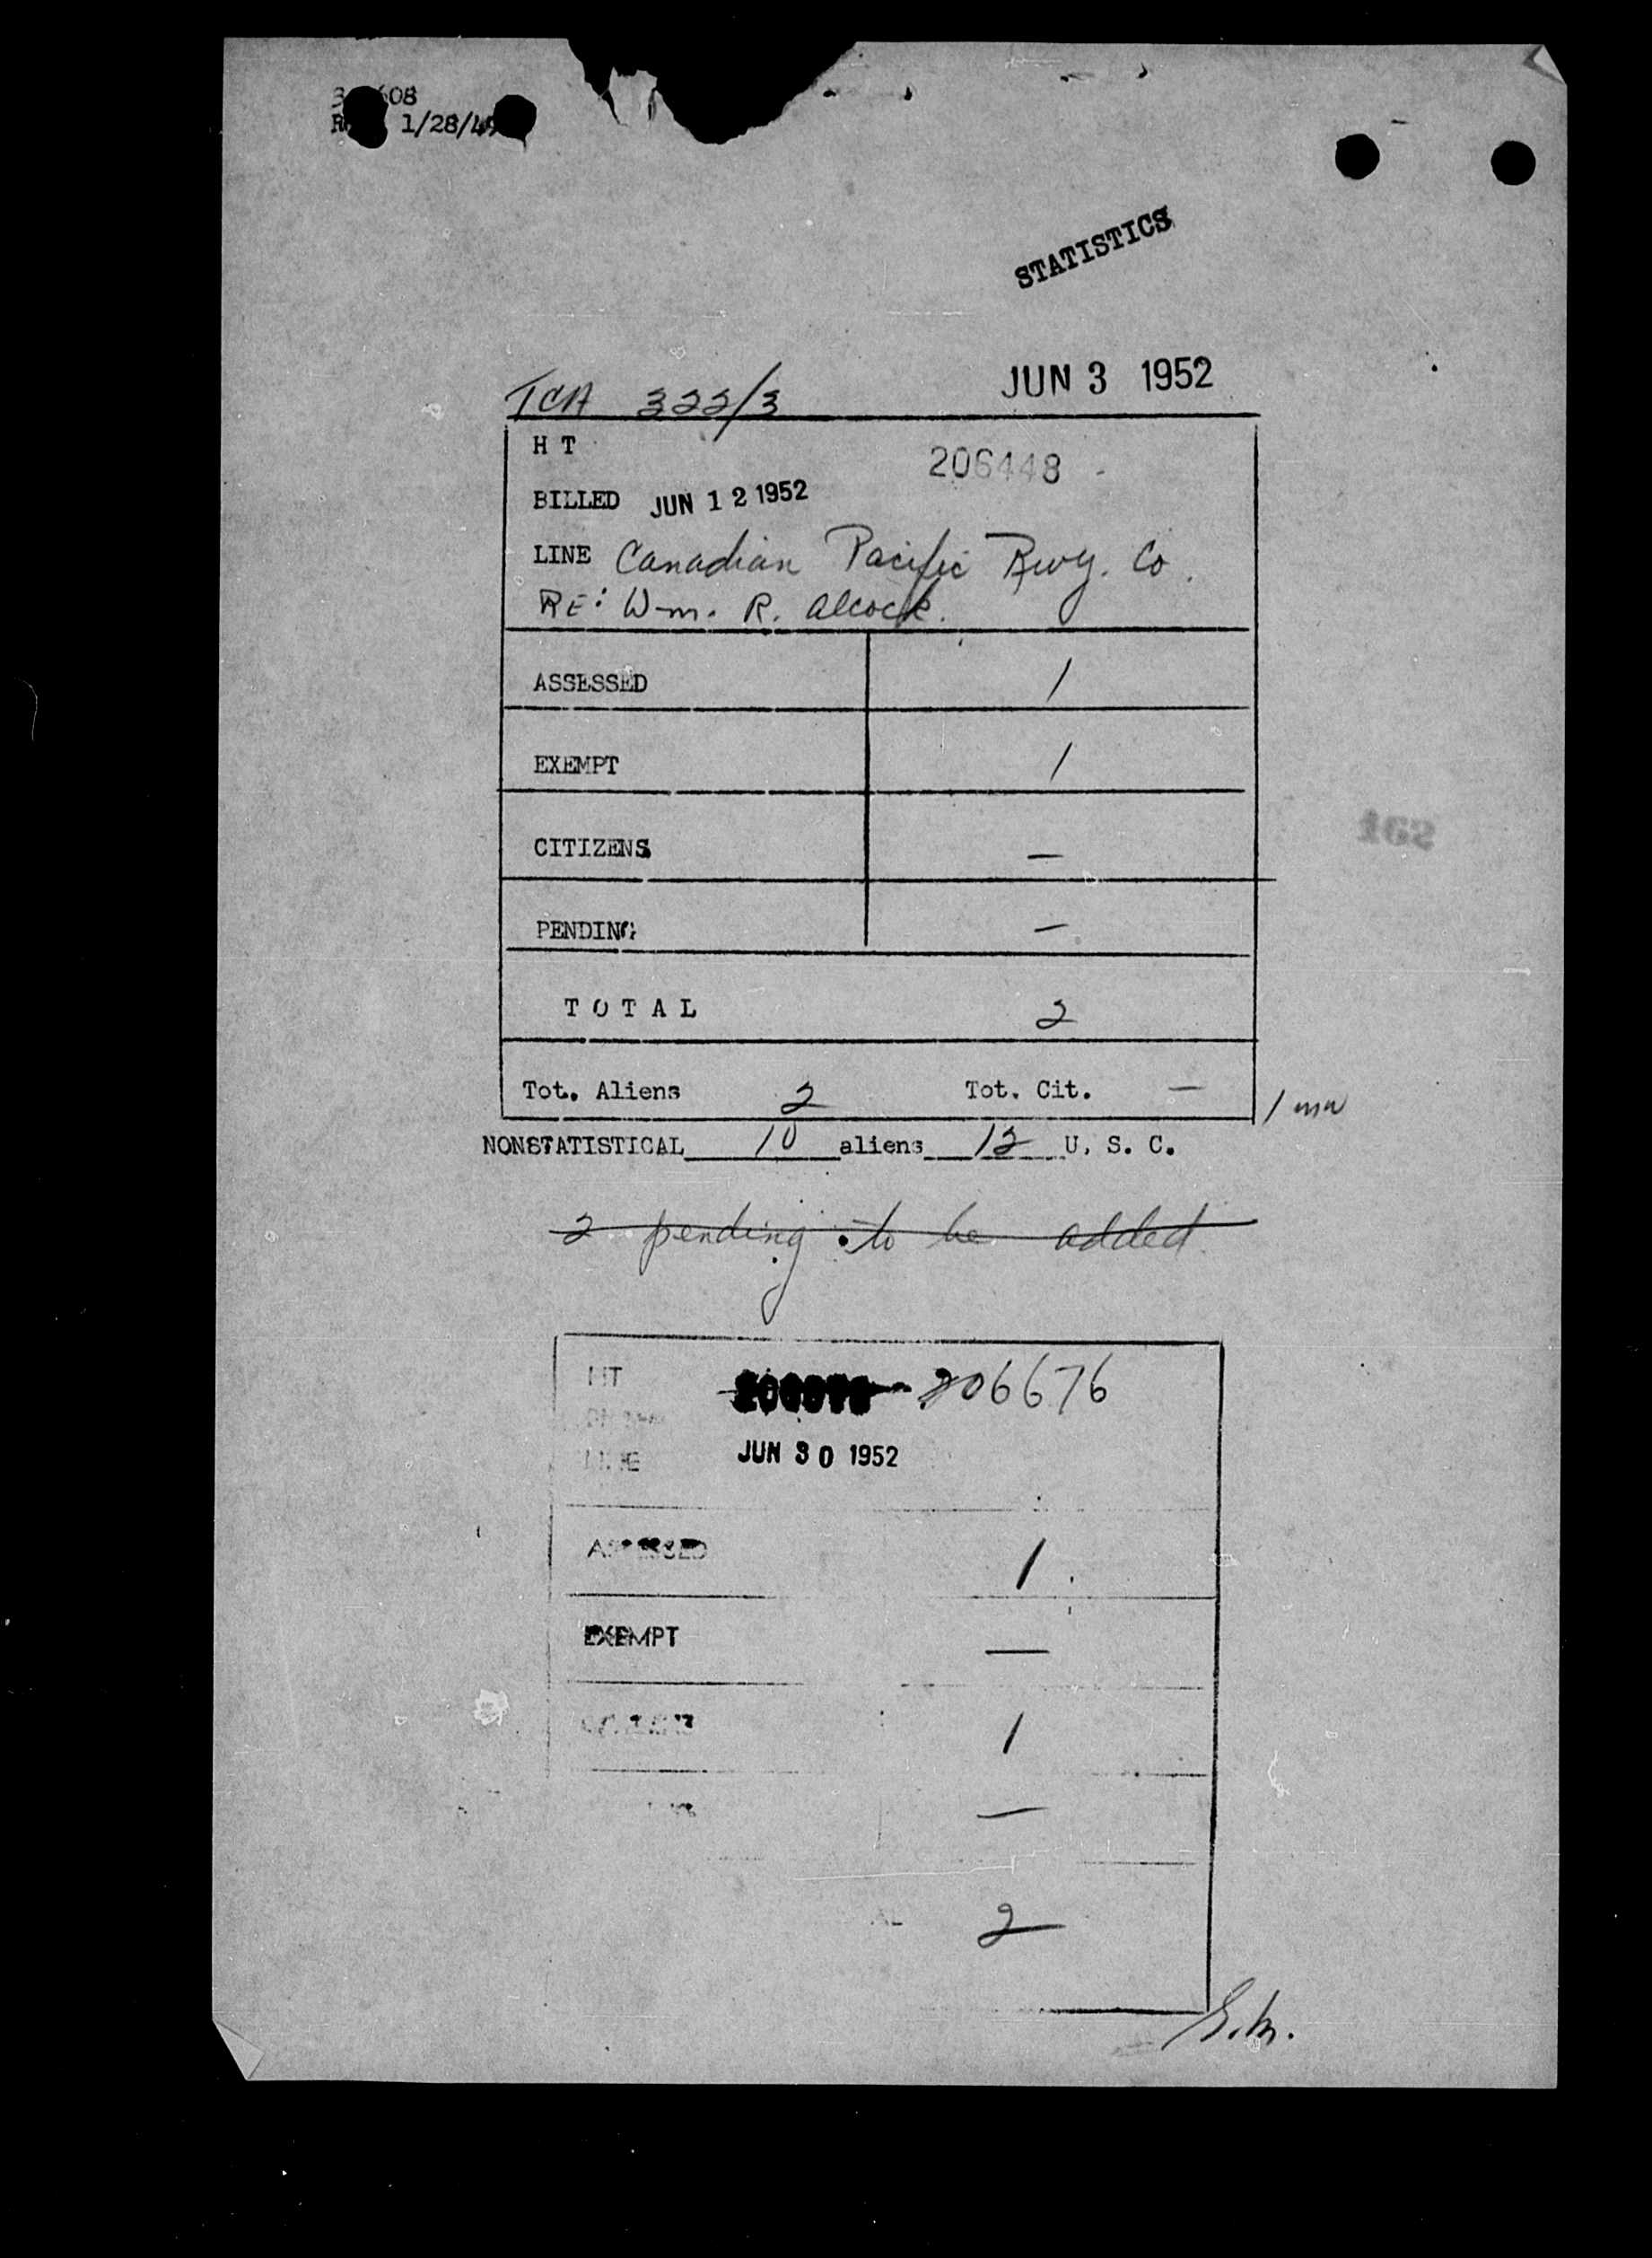 08
1/28/49
STATISTICS
TCA 322/3 JUN 3 1952
H T 206448
BILLED JUN 12 1952
LINE Canadian Pacific Rwy. Co.
RE: Wm. R. Alcock.
ASSESSED 1
EXEMPT 1
CITIZENS —
162
PENDING —
T O T A L 2
Tot. Aliens 2 Tot. Cit. —
1 mw
NONSTATISTICAL 10 aliens 12 U. S. C.
2 pending to be added
HT 206676
LINE JUN 30 1952
ASSESSED 1
EXEMPT —
1
—
2